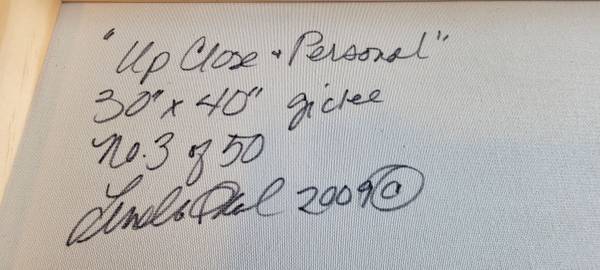 "Up Close + Personal"
30" x 40" giclee
No. 3 of 50
2009 ©